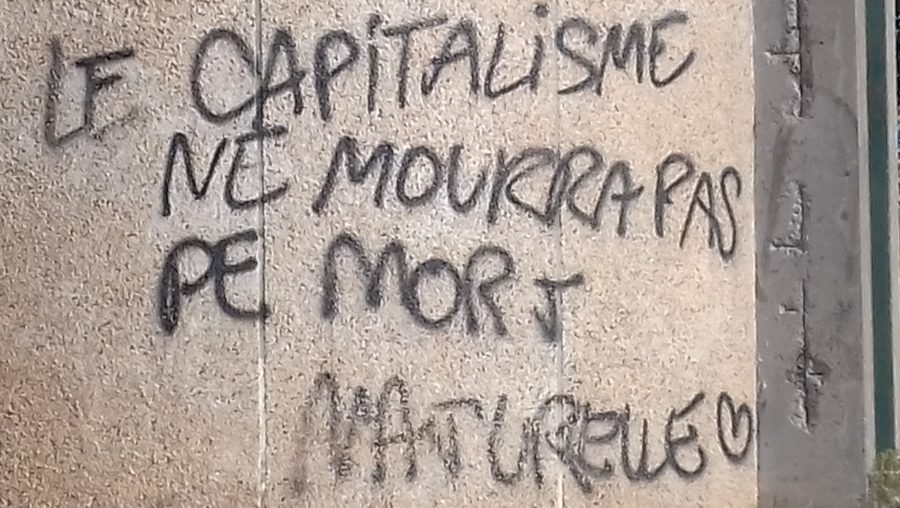 LE CAPITALISME
NE MOURRA PAS
DE MORT
NATURELLE ♡